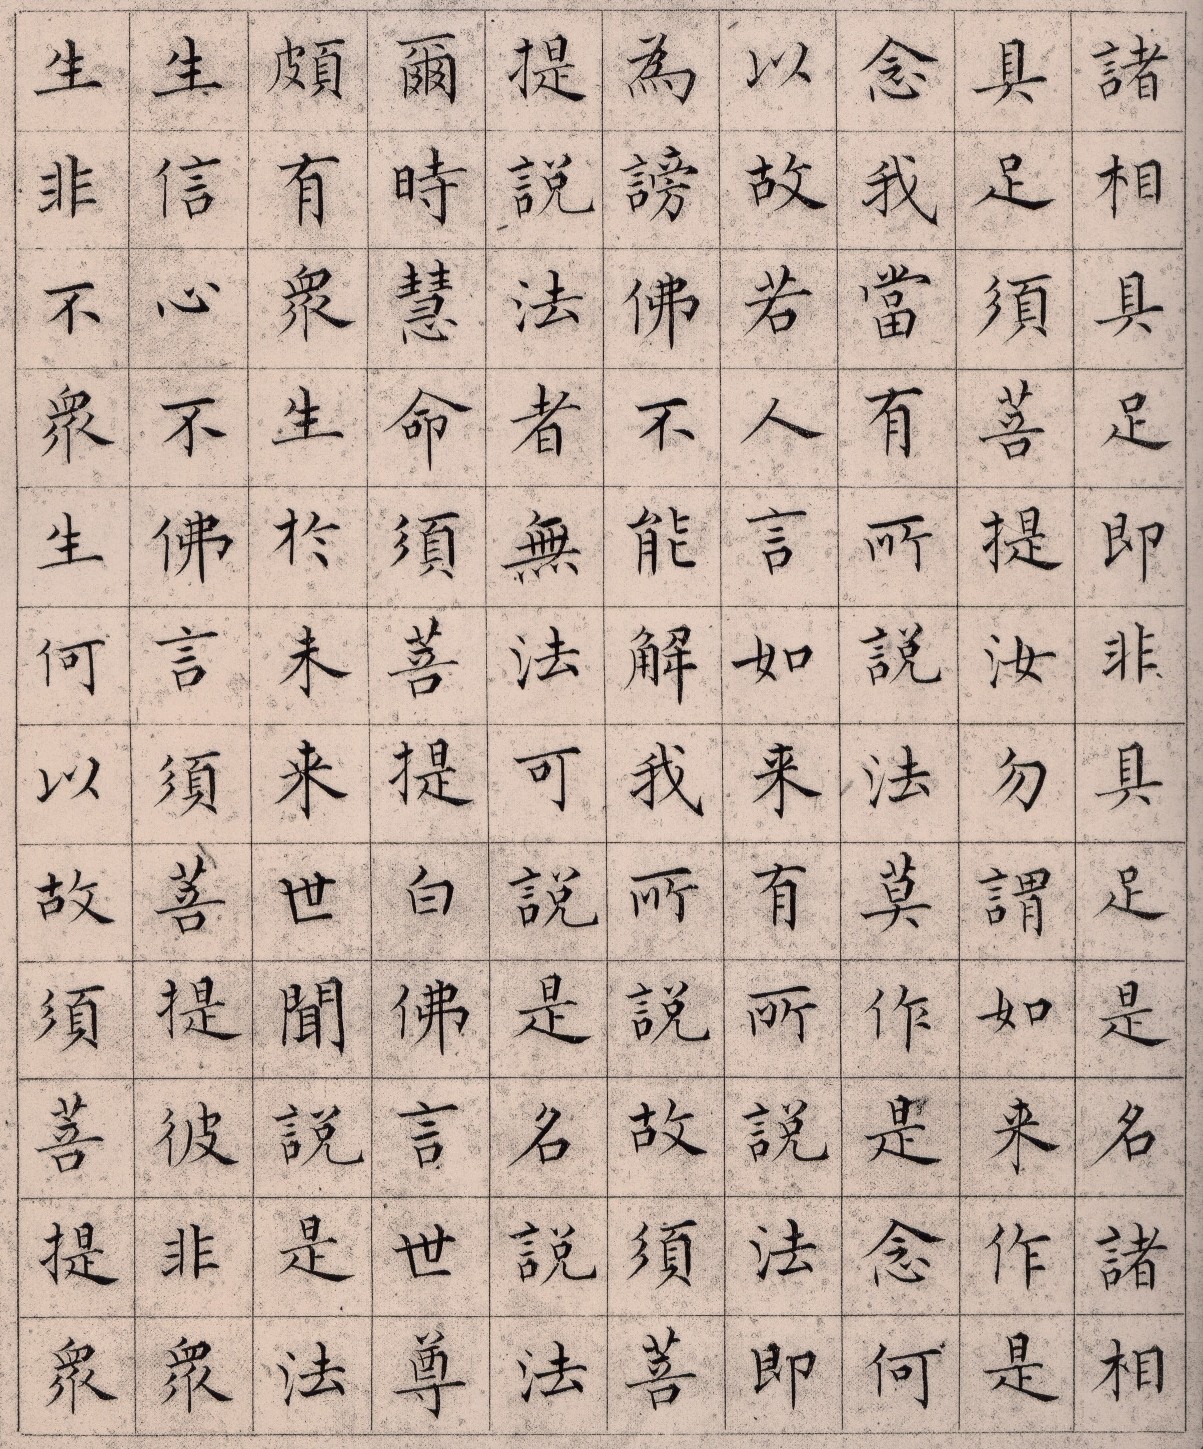 諸相具足即非具足是名諸相
具足須菩提汝勿謂如来作是
念我當有所說法莫作是念何
以故若人言如来有所說法即
為謗佛不能解我所說故須菩
提說法者無法可說是名說法
爾時慧命須菩提白佛言世尊
頗有眾生於未来世聞說是法
生信心不佛言須菩提彼非眾
生非不眾生何以故須菩提眾